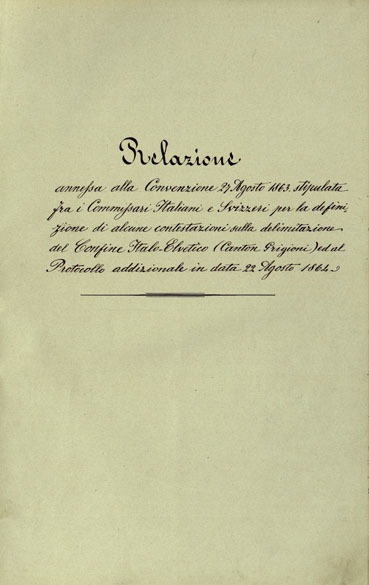 Relazione
annessa alla Convenzione 27 Agosto 1863. stipulata
fra i Commissari Italiani e Svizzeri per la defini,
zione di alcune contestazioni sulla delimitazione
del Confine Italo-Elvetico (Canton Grigioni) ed al
Protocollo addizionale in data 22 Agosto 1864.